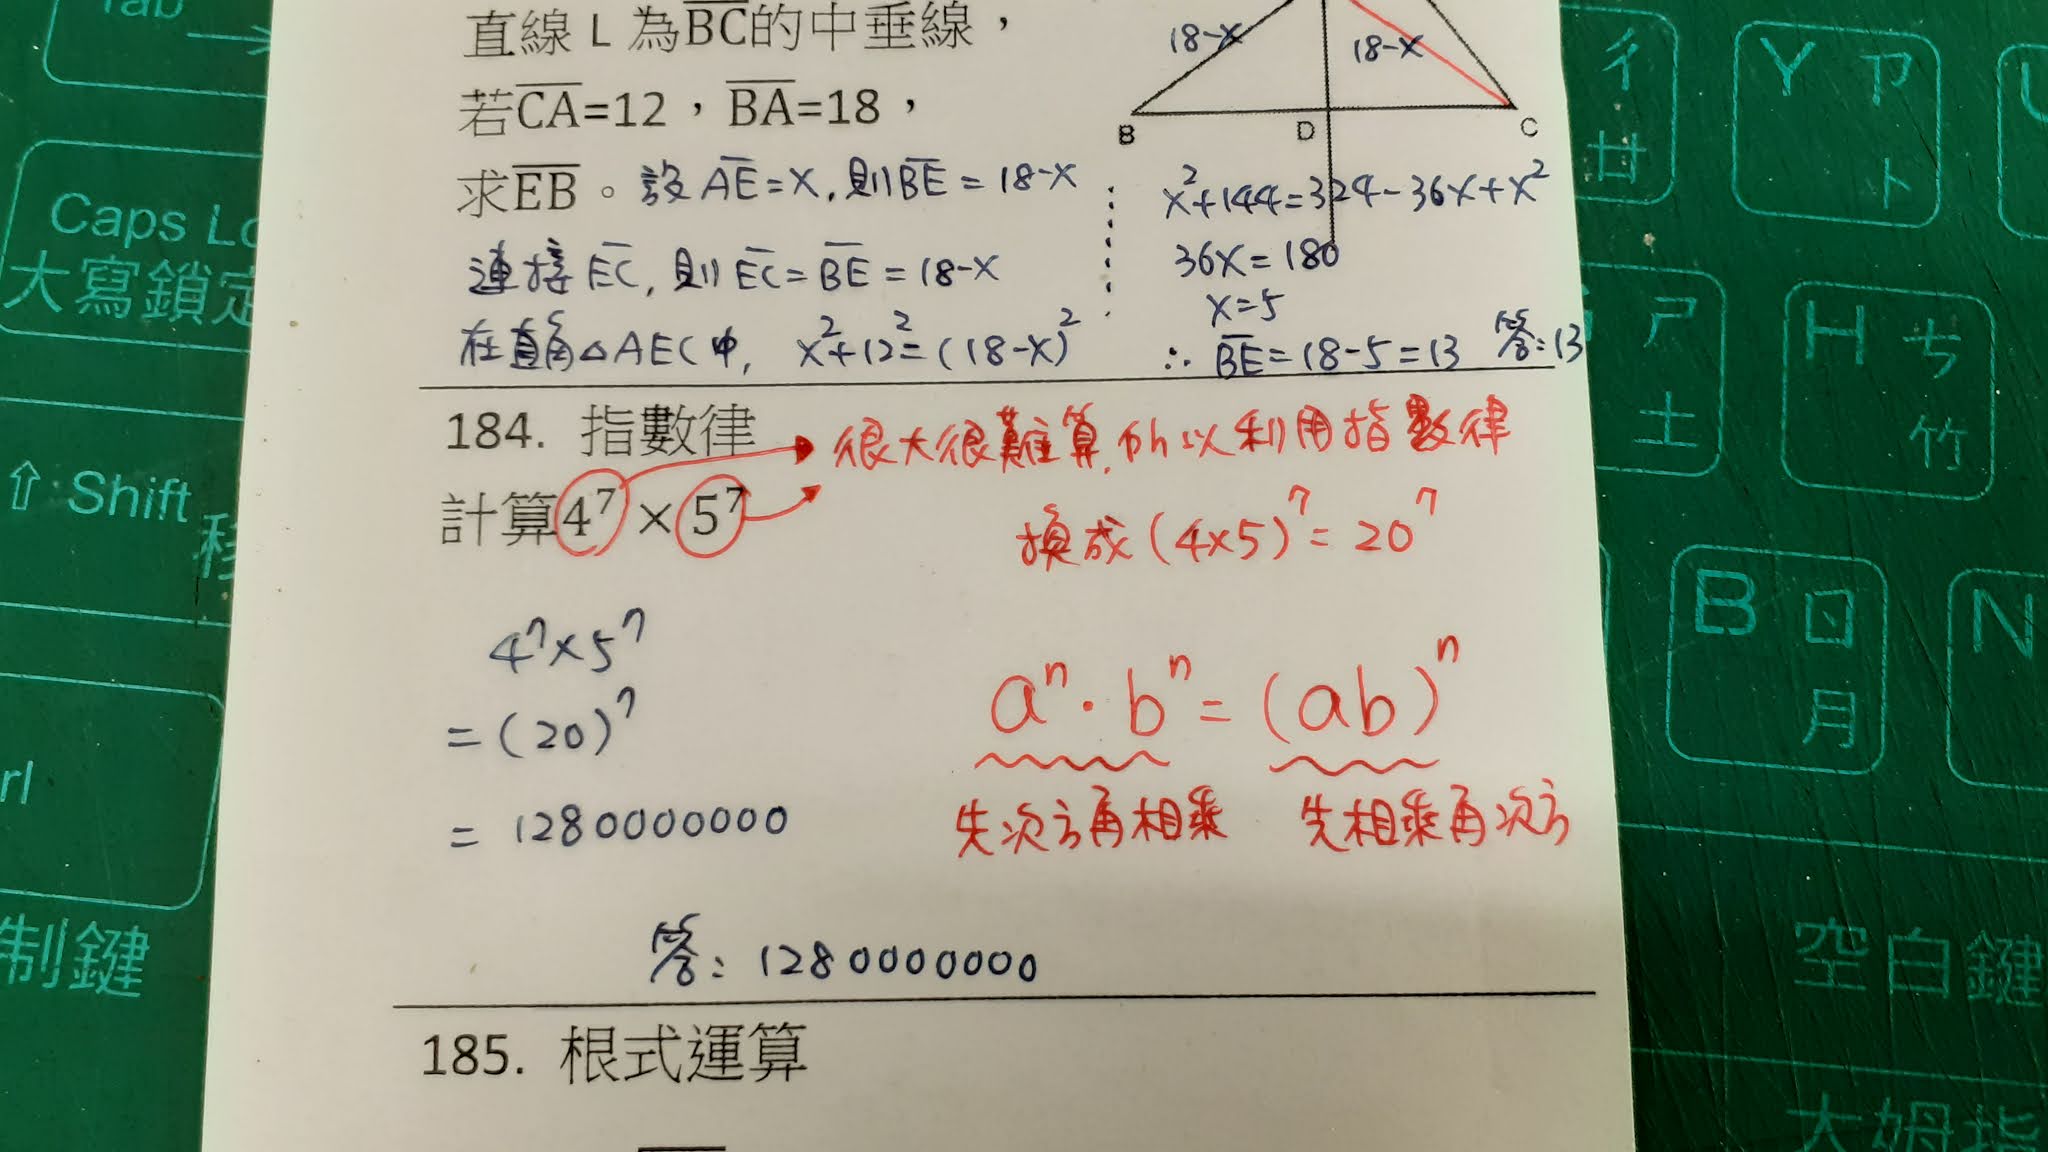 Tab
直線 L 為BC的中垂線，
若CA=12，BA=18，
求EB。設AE=X,則BE=18-X
連接EC,則EC=BE=18-X
在直角△AEC中, X²+12²=(18-X)²
18-X
18-X
B
D
C
X²+144=324-36X+X²
36X=180
X=5
∴BE=18-5=13 答:13
184. 指數律
很大很難算,所以利用指數律
計算4⁷×5⁷
換成(4×5)⁷=20⁷
4⁷×5⁷
=(20)⁷
=1280000000
aⁿ·bⁿ=(ab)ⁿ
先次方再相乘
先相乘再次方
答:1280000000
185. 根式運算
Caps Lo
大寫鎖定
⇧ Shift
移
rl
制鍵
彳
廿
Y
ㄗ
卜
U
ㄕ
土
H
ㄘ
竹
B
ㄖ
月
N
空白鍵
大姆指